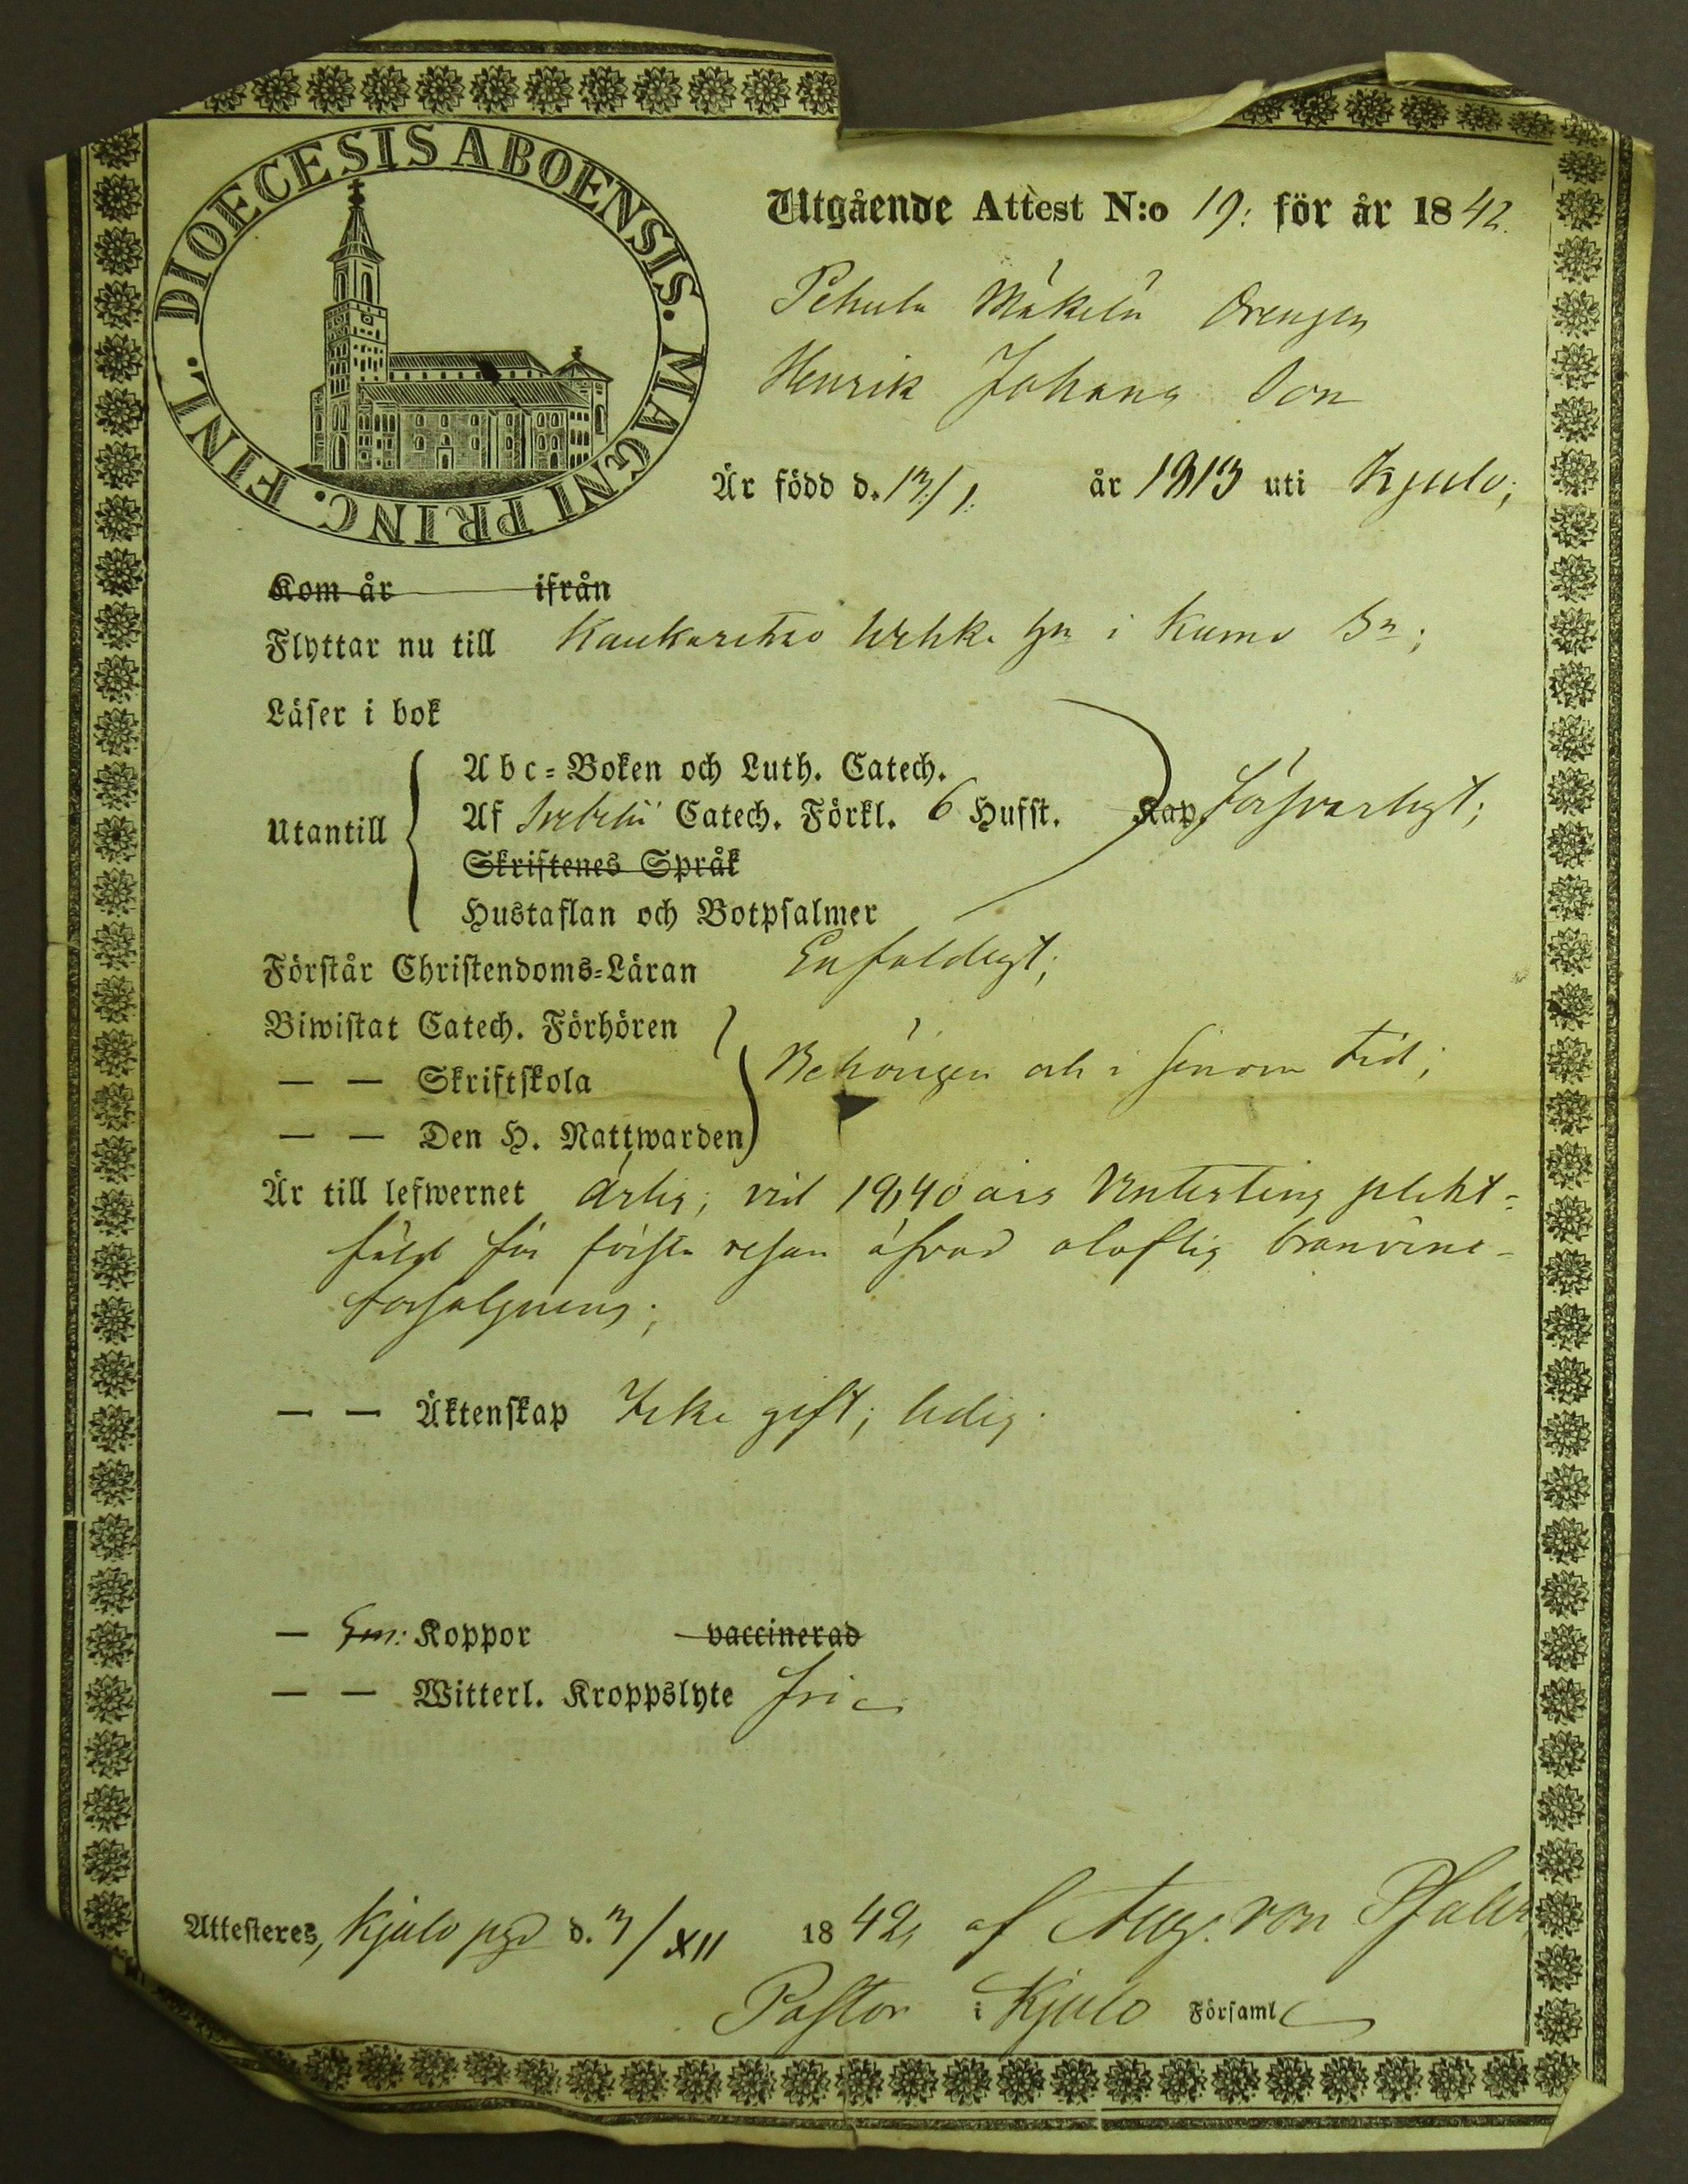 DIOECESIS ABOENSIS. MAGNI PRINC. FINL.
Utgående Attest N:o 19: för år 1842.
Pehula Mäkelä Drengen
Henrik Johans Son
Är född d. 13/1. år 1813 uti Kjulo;
Kom år ifrån
Flyttar nu till Kaukaritzo i Kumo Sn;
Läser i bok
Utantill
Abc-Boken och Luth. Catech.
Af Svebelii Catech. Förkl. 6 Hufst. Kap. försvarligt;
Skriftenes Språk
Hustaflan och Botpsalmer
Förstår Christendoms-Läran Enfaldigt;
Biwistat Catech. Förhören
— — Skriftskola Behörigen och i sinom tid;
— — Den H. Nattwarden
Är till lefwernet ärlig; vid 1840 års Vinterting plikt-
fäld för första resan öfvad olaflig bränvins-
försäljning;
— — Äktenskap Icke gift; ledig.
— Koppor vaccinerad
— — Witterl. Kroppslyte fri
Attesteres, Kjulo pgd d. 3/XII 1842, af Aug. von Pfaler
Pastor i Kjulo Församl